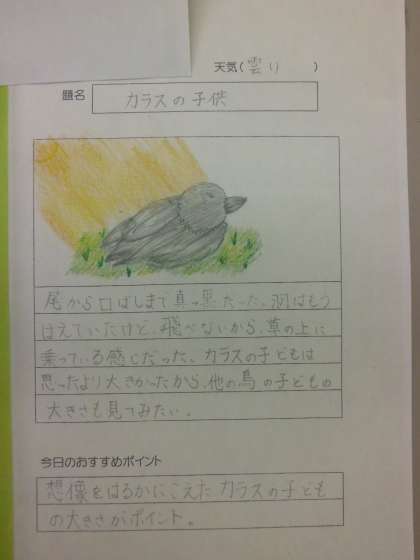 天気(雲り)
題名 カラスの子供
尾から口ばしまで真っ黒だった。羽はもう
はえていたけど、飛べないから、草の上に
乗っている感じだった。カラスの子どもは
思ったより大きかったから、他の鳥の子どもの
大きさも見てみたい。
今日のおすすめポイント
想像をはるかにこえたカラスの子ども
の大きさがポイント。